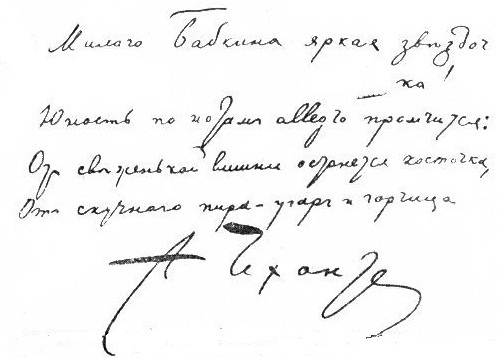 Милаго Бабкина яркая звѣздоч
ка!
Юность по нотамъ allegro промчится:
Отъ свѣженькой вишни останется косточка,
Отъ скучнаго пира - угаръ и горчица
А Чехонте